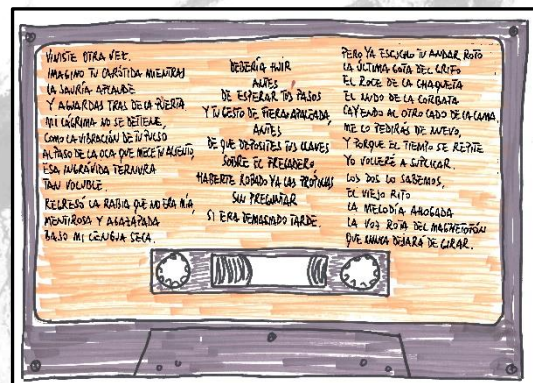 VINISTE OTRA VEZ.
IMAGINO TU CARÓTIDA MIENTRAS
LA SAURIA APLAUDE
Y AGUARDAS TRAS DE LA PUERTA
MI LÁGRIMA NO SE DETIENE,
COMO LA VIBRACIÓN DE TU PULSO
AL PASO DE LA OCA QUE MECE TU ALIENTO,
ESA INGRÁVIDA TERNURA
TAN VOLUBLE.
REGRESÓ LA RABIA QUE NO ERA MÍA
MENTIROSA Y AGAZAPADA
BAJO MI LENGUA SECA.
DEBERÍA HUIR
ANTES
DE ESPERAR TUS PASOS
Y TU GESTO DE FIERA APALEADA,
ANTES
DE QUE DEPOSITES TUS LLAVES
SOBRE EL FREGADERO
HABERTE ROBADO YA LAS PRÓXIMAS
SIN PREGUNTAR
SI ERA DEMASIADO TARDE.
PERO YA ESCUCHO TU ANDAR ROTO
LA ÚLTIMA GOTA DEL GRIFO
EL ROCE DE LA CHAQUETA
EL NUDO DE LA CORBATA
CAYENDO AL OTRO LADO DE LA CAMA,
ME LO PEDIRÁS DE NUEVO,
Y PORQUE EL TIEMPO SE REPITE
YO VOLVERÉ A SUPLICAR.
LOS DOS LO SABEMOS,
EL VIEJO RITO
LA MELODÍA AHOGADA
LA VOZ ROTA DEL MAGNETOFÓN
QUE NUNCA DEJARÁ DE GIRAR.